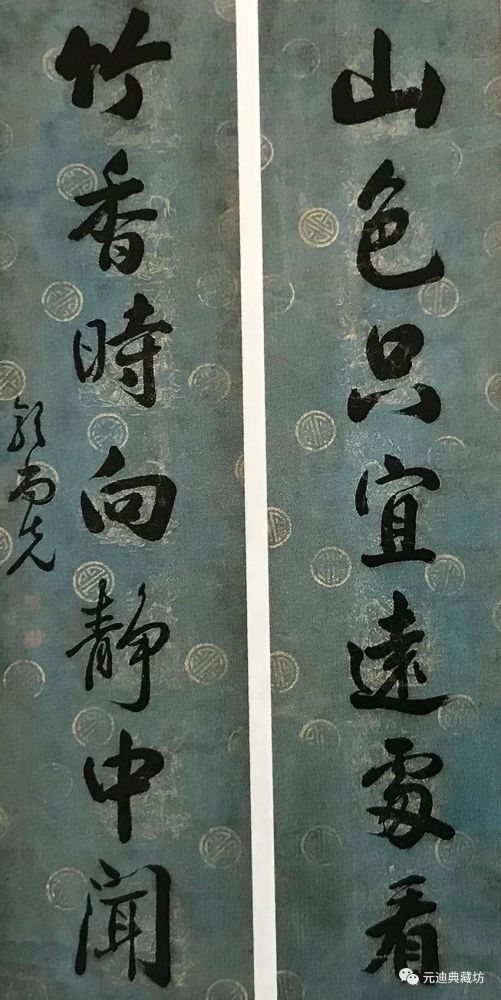 山色只宜遠處看
竹香時向靜中聞
郭尚先
元迪典藏坊